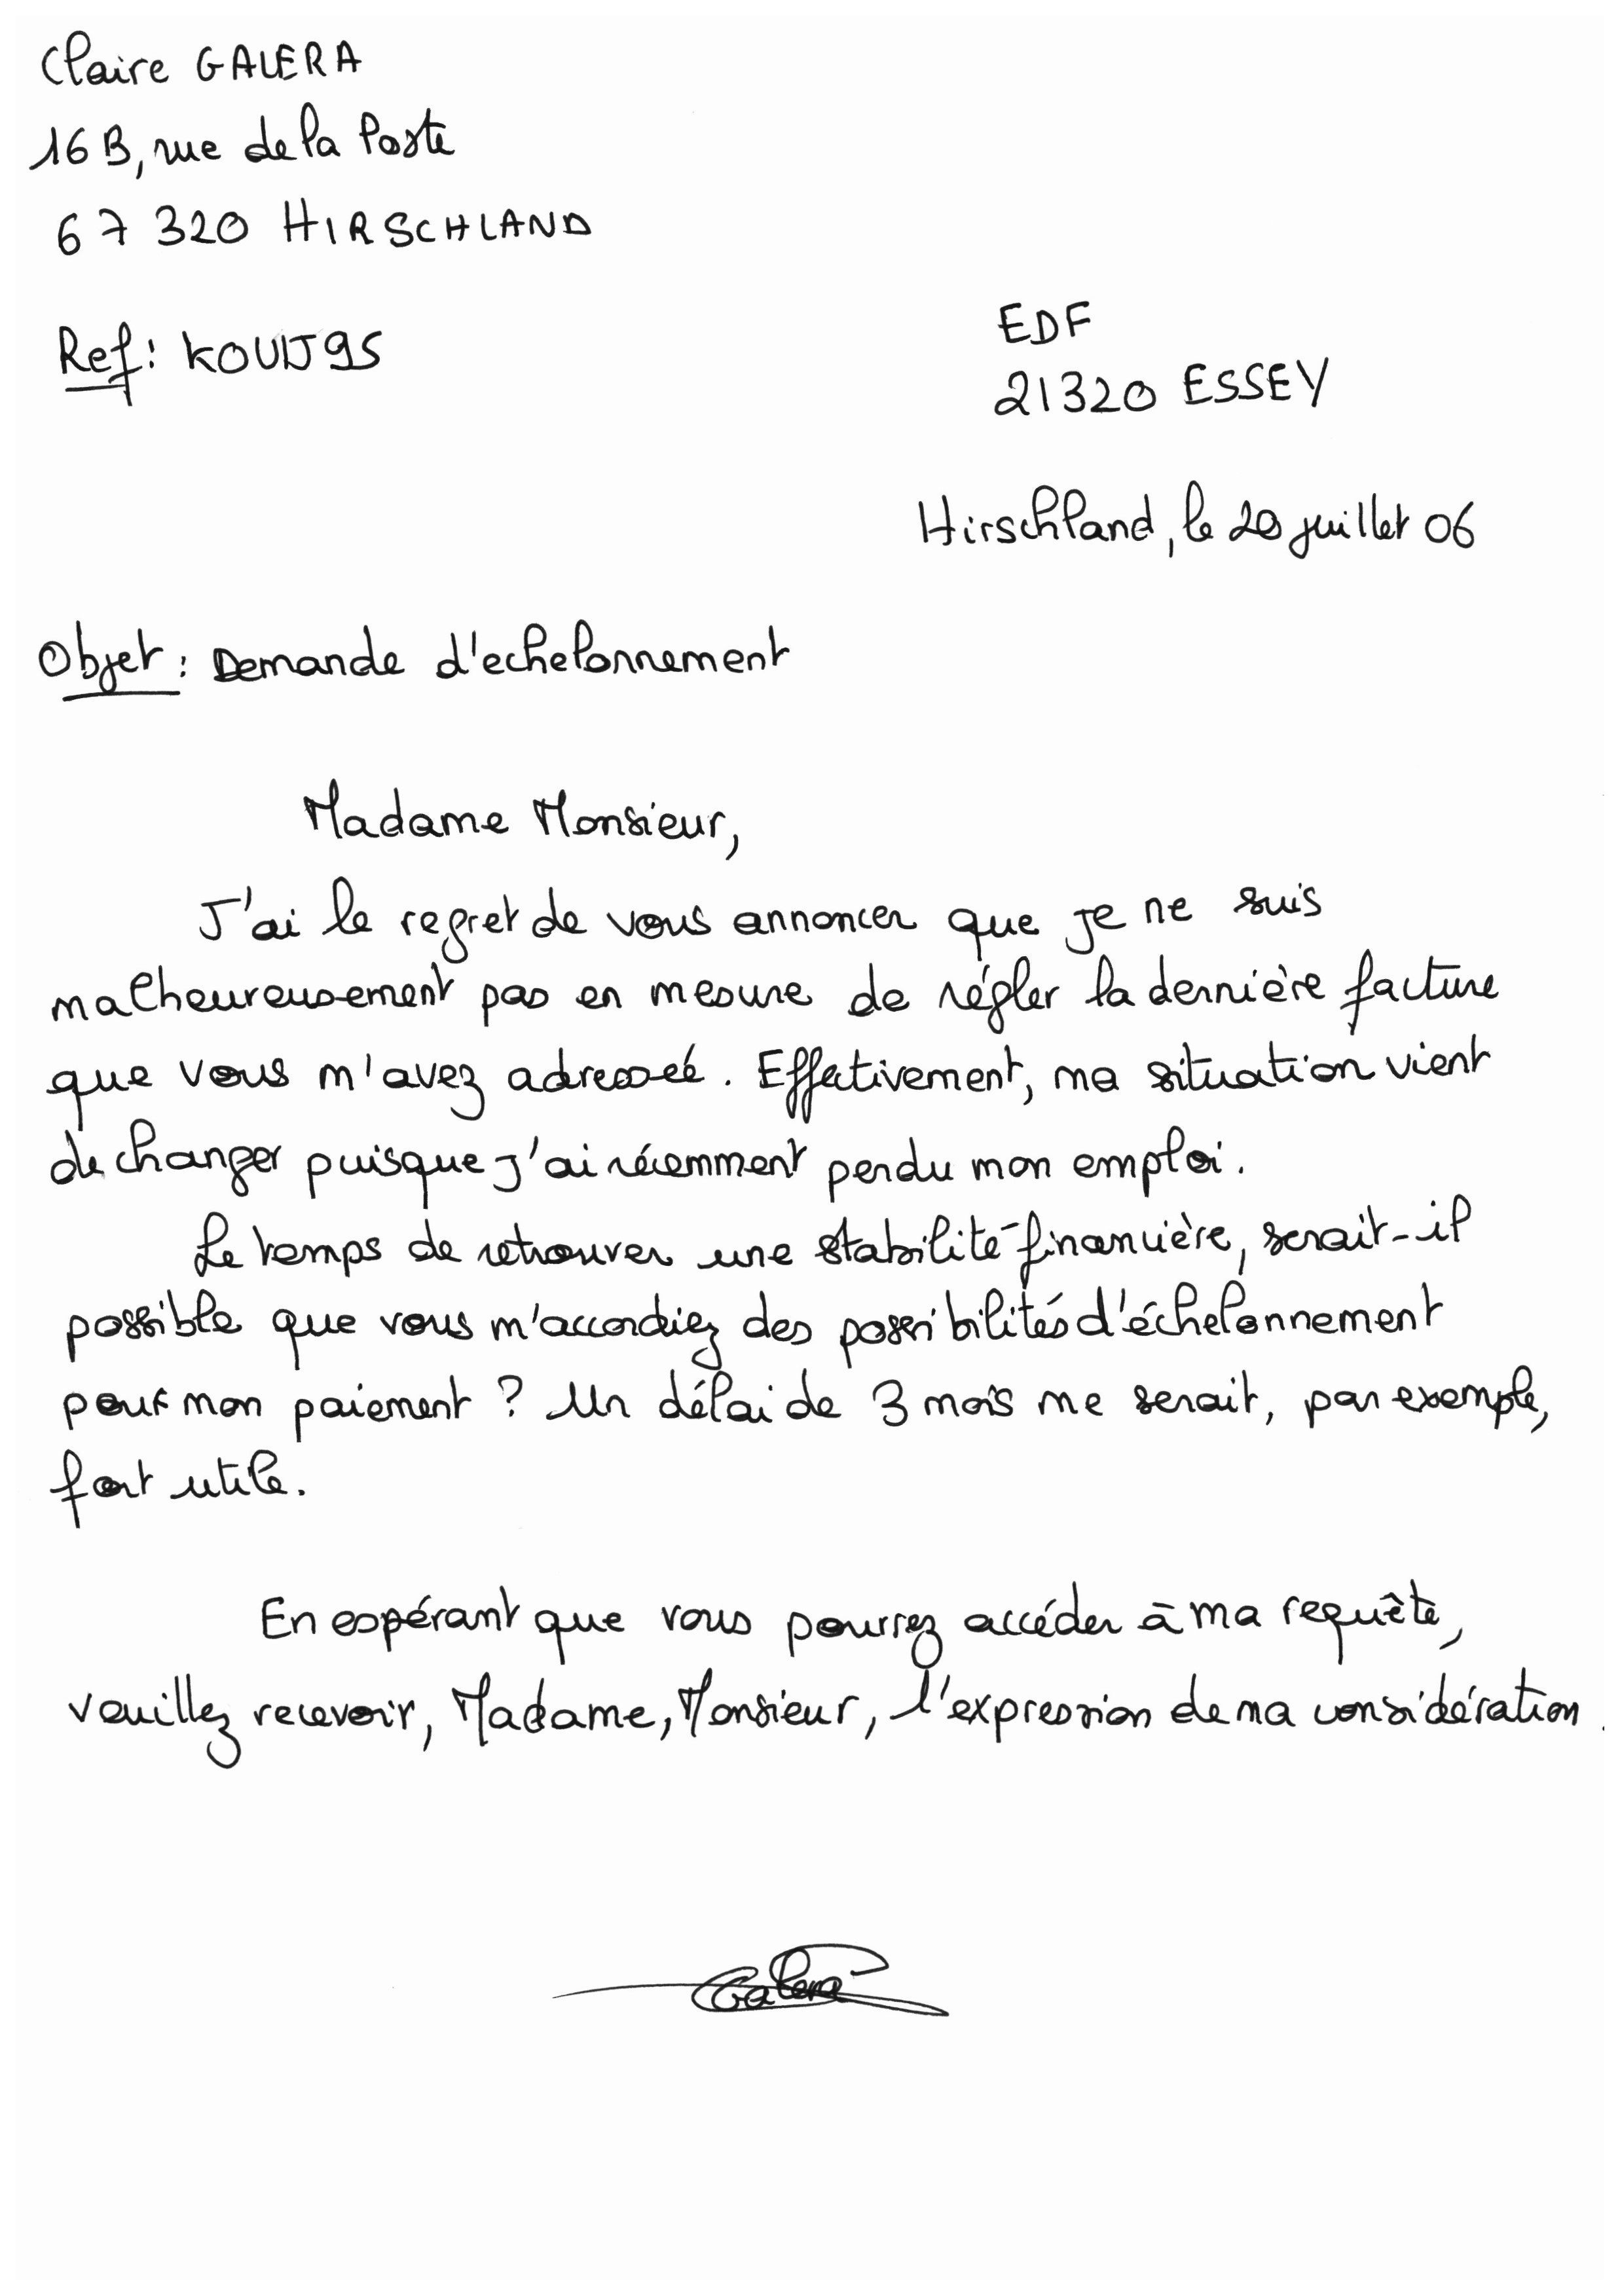 Claire GALERA
16B, rue de la Poste
67 320 HIRSCHLAND
EDF
Ref: KOUIJ95
21320 ESSEY
Hirschland, le 20 juillet 06
Objet: Demande d'echelonnement
Madame Monsieur,
J'ai le regret de vous annoncer que je ne suis
malheureusement pas en mesure de régler la dernière facture
que vous m'avez adressée. Effectivement, ma situation vient
de changer puisque j'ai récemment perdu mon emploi.
Le temps de retrouver une stabilité financière, serait-il
possible que vous m'accordiez des possibilités d'échelonnement
pour mon paiement ? Un délai de 3 mois me serait, par exemple,
fort utile.
En espérant que vous pourrez accéder à ma requête,
veuillez recevoir, Madame, Monsieur, l'expression de ma considération.
Galera